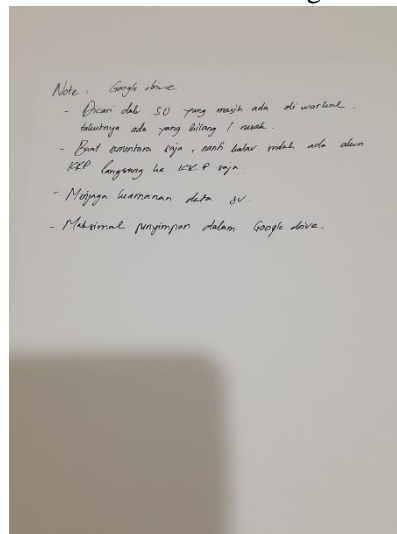 Note : Google drive.
- Dicari dulu SU yang masih ada di warkah,
takutnya ada yang hilang / rusak.
- Buat sementara saja, nanti kalau sudah ada akun
KKP langsung ke KKP saja.
- Menjaga keamanan data su.
- Maksimal penyimpan dalam Google drive.